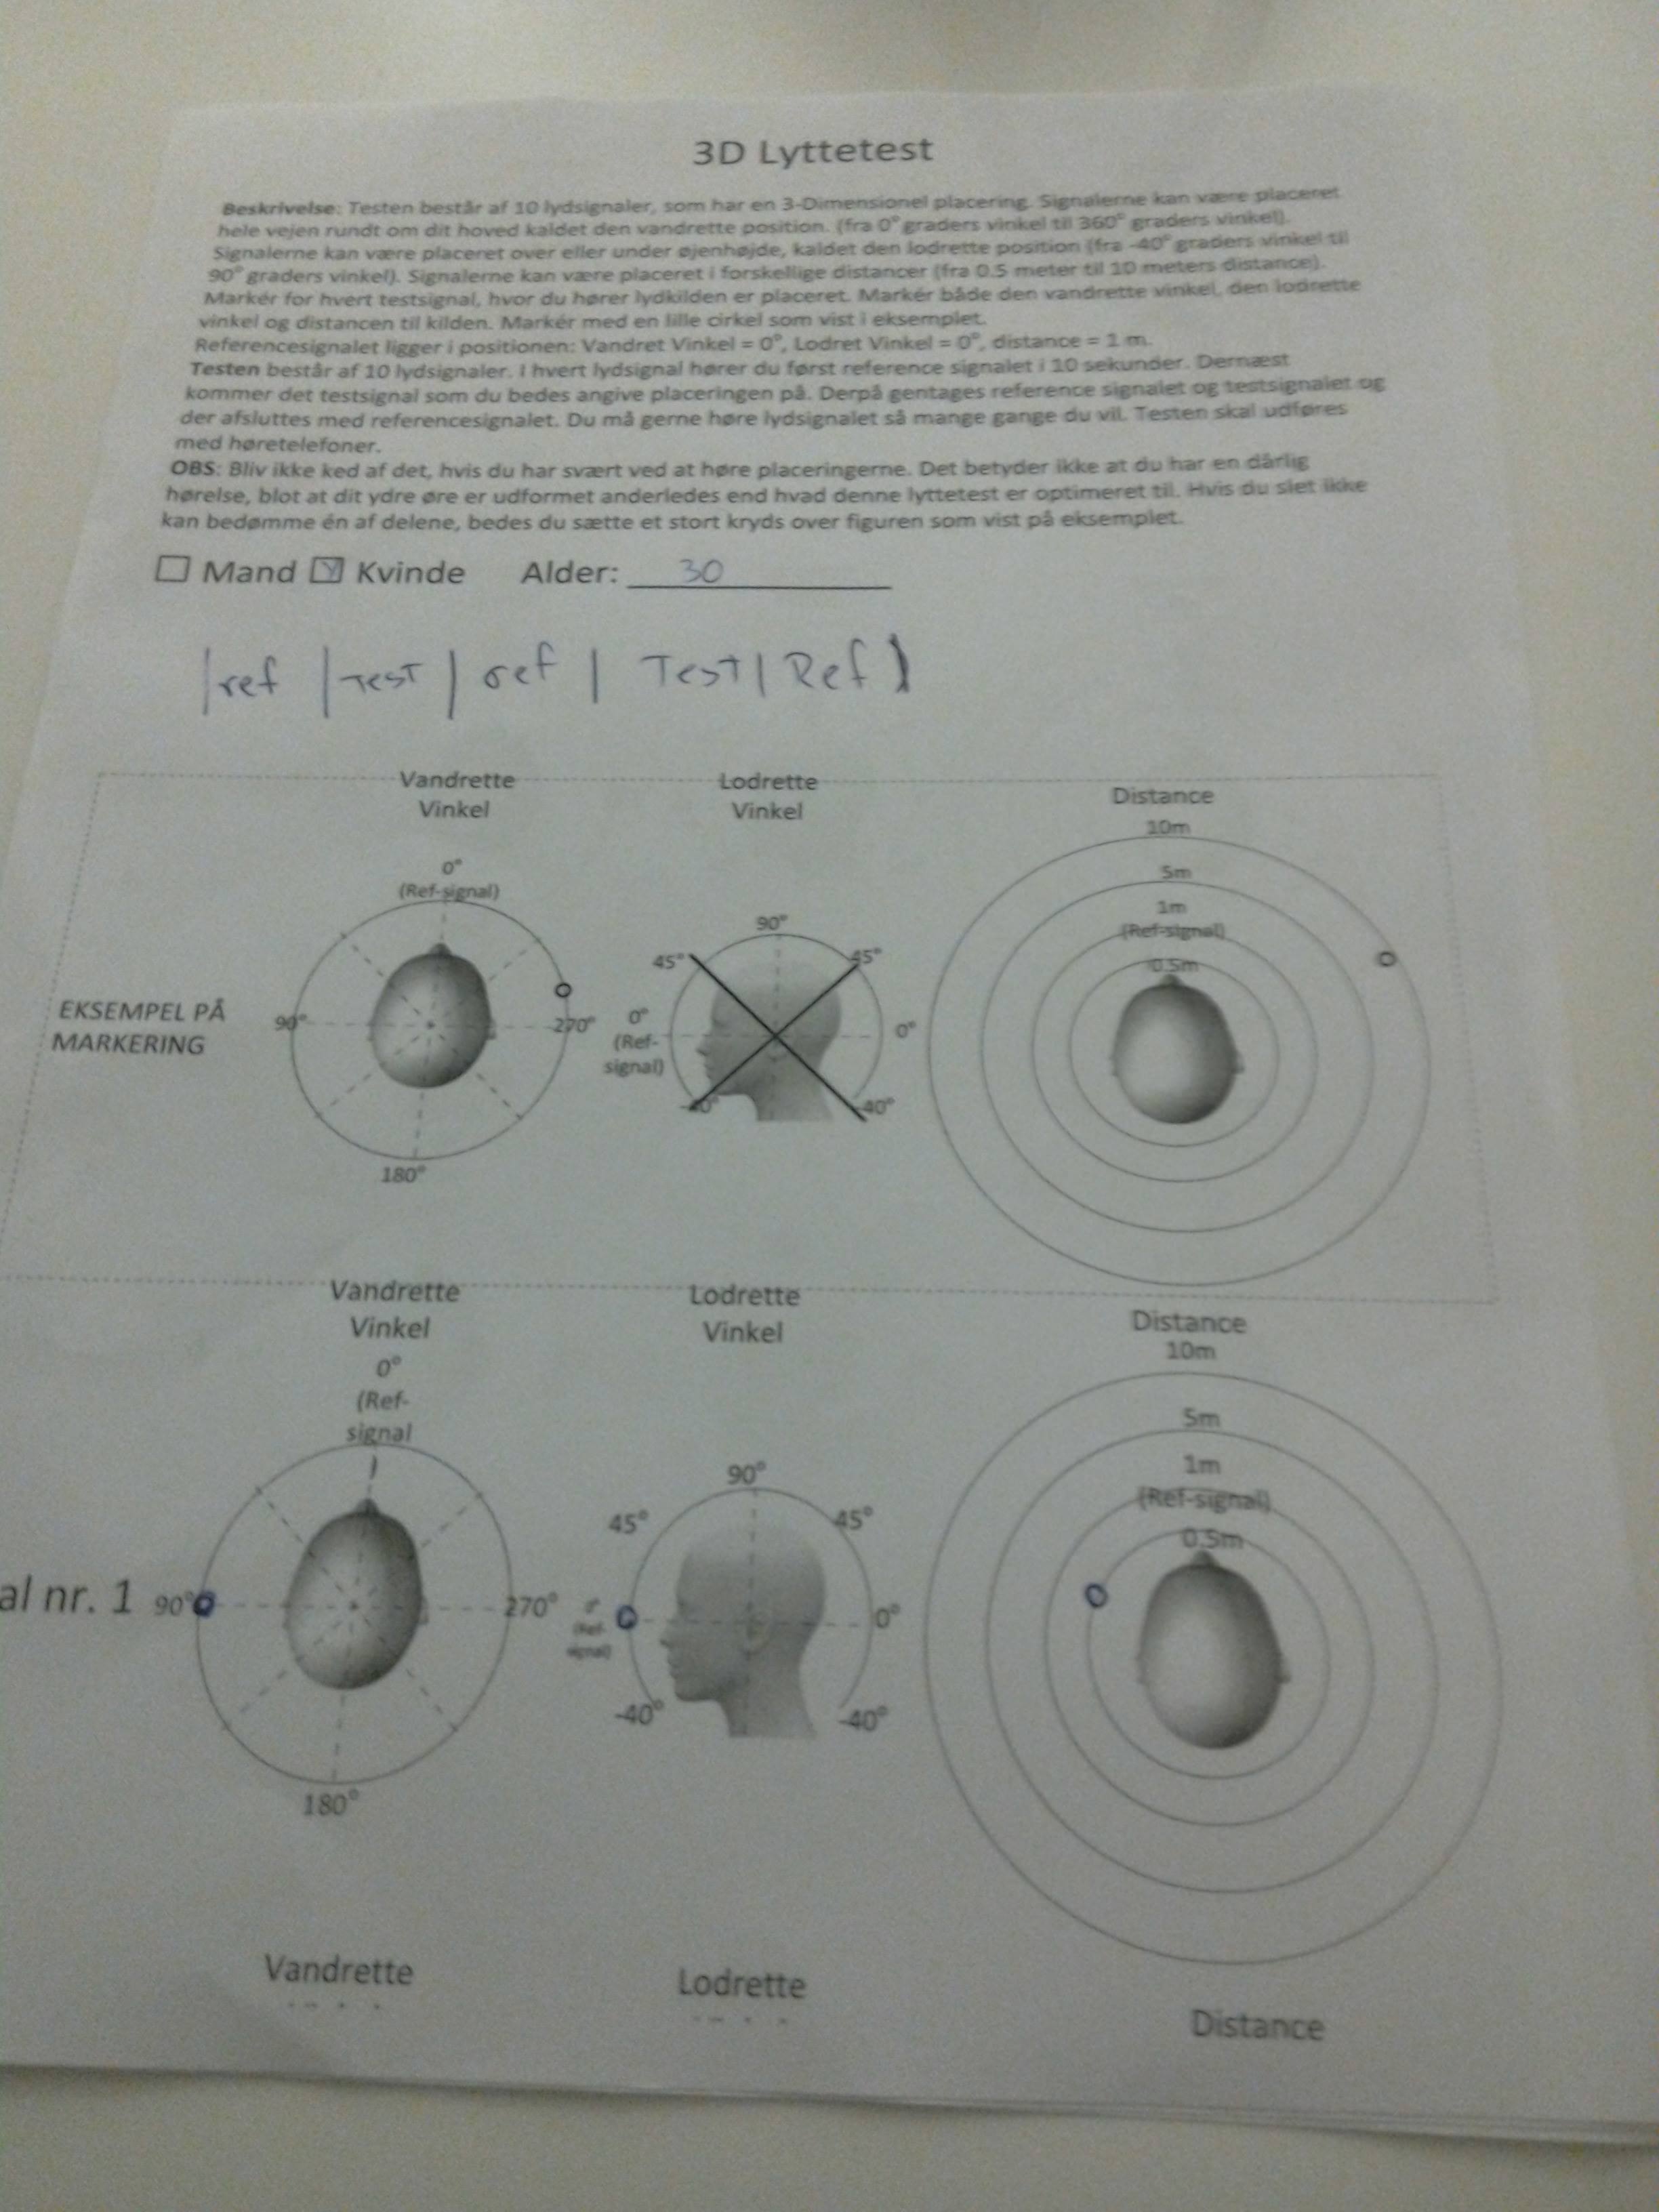 3D Lyttetest
Beskrivelse: Testen består af 10 lydsignaler, som har en 3-Dimensionel placering. Signalerne kan være placeret
hele vejen rundt om dit hoved kaldet den vandrette position. (fra 0° graders vinkel til 360° graders vinkel).
Signalerne kan være placeret over eller under øjenhøjde, kaldet den lodrette position (fra -40° graders vinkel til
90° graders vinkel). Signalerne kan være placeret i forskellige distancer (fra 0.5 meter til 10 meters distance).
Markér for hvert testsignal, hvor du hører lydkilden er placeret. Markér både den vandrette vinkel, den lodrette
vinkel og distancen til kilden. Markér med en lille cirkel som vist i eksemplet.
Referencesignalet ligger i positionen: Vandret Vinkel = 0°, Lodret Vinkel = 0°, distance = 1 m.
Testen består af 10 lydsignaler. I hvert lydsignal hører du først reference signalet i 10 sekunder. Dernæst
kommer det testsignal som du bedes angive placeringen på. Derpå gentages reference signalet og testsignalet og
der afsluttes med referencesignalet. Du må gerne høre lydsignalet så mange gange du vil. Testen skal udføres
med høretelefoner.
OBS: Bliv ikke ked af det, hvis du har svært ved at høre placeringerne. Det betyder ikke at du har en dårlig
hørelse, blot at dit ydre øre er udformet anderledes end hvad denne lyttetest er optimeret til. Hvis du slet ikke
kan bedømme én af delene, bedes du sætte et stort kryds over figuren som vist på eksemplet.
Mand Kvinde Alder: 30
|ref |Test | ref | Test | Ref |
Vandrette Lodrette Distance
Vinkel Vinkel
10m
0° 5m
(Ref-signal) 1m
90° (Ref-signal)
45° 45° 0.5m
EKSEMPEL PÅ 90° 270° 0° 0°
MARKERING (Ref-
signal)
-40° -40°
180°
Vandrette Lodrette Distance
Vinkel Vinkel 10m
0°
(Ref- 5m
signal 1m
) 90° (Ref-signal)
45° 45° 0.5m
al nr. 1 90° 270° 0° 0°
(Ref-
signal)
-40° -40°
180°
Vandrette Lodrette Distance